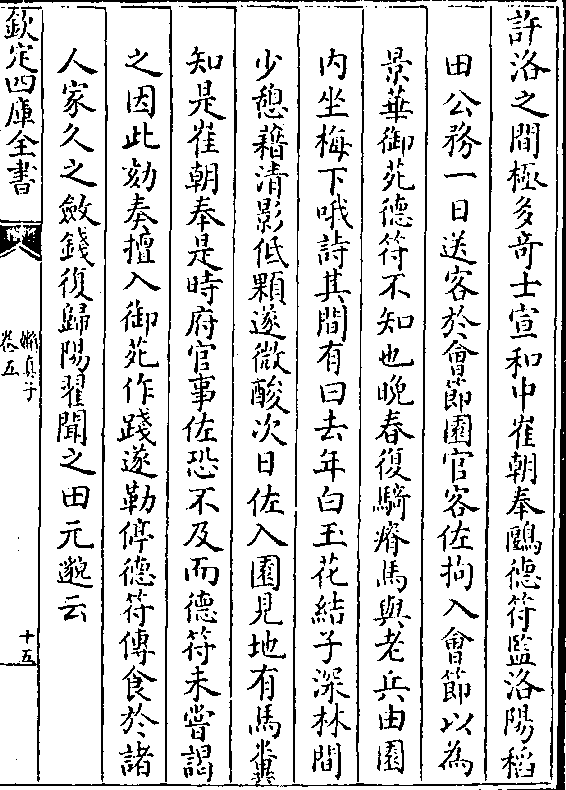 許洛之間極多竒士宣和中崔朝奉鷗德符監洛陽稻
田公務一日送客於會節園官客佐拘入會節以為
景華御苑德符不知也晚春復騎瘠馬與老兵由園
内坐梅下哦詩其間有曰去年白玉花結子深林間
少憩藉清影低顆遂微酸次日佐入園見地有馬糞
知是崔朝奉是時府官事佐恐不及而德符未嘗謁
之因此劾奏擅入御苑作踐遂勒停德符傳食於諸
人家久之斂錢復歸陽翟聞之田元邈云
欽定四庫全書
嬾真子
卷五
十五